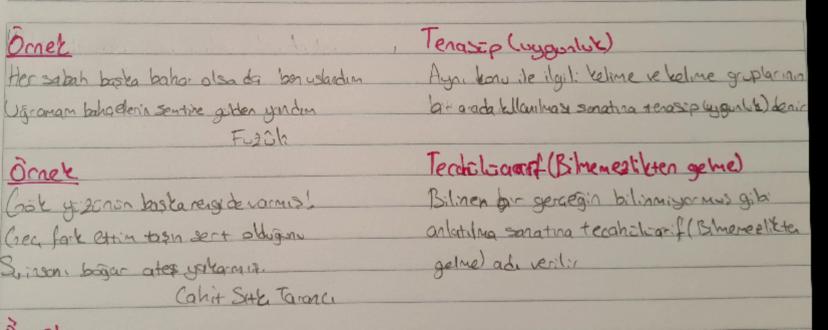 Örnek
Her sabah başka bahar olsa da ben uslandım
Uğramam bahçelerin semtine gülden yandım
Fuzûli
Örnek
Gök yüzünün başka rengi de varmış!
Geç fark ettim taşın sert olduğunu
Su insanı boğar ateş yakarmış.
Cahit Sıtkı Tarancı
Tenasip (uygunluk)
Aynı konu ile ilgili kelime ve kelime gruplarının
bir arada kullanılması sanatına tenasip (uygunluk) denir
Tecahüliarif (Bilmemezlikten gelme)
Bilinen bir gerçeğin bilinmiyormuş gibi
anlatılma sanatına tecahüliarif (Bilmemezlikten
gelme) adı verilir